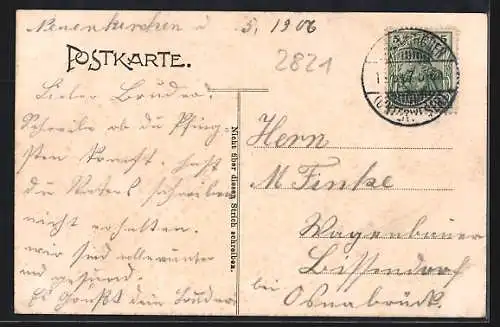 Neuenkirchen d 5. 1906
POSTKARTE.
2821
Lieber Bruder!
Schreibe ob du Pfing-
sten kommst. hast
du Vaters schreiben
nicht erhalten.
wir sind alle munter
und gesund.
Es Grüßt dein Bruder
Nicht über diesen Strich schreiben.
Herrn
M Finke
Wagenbauer
Bissendorf
bei Osnabrück.